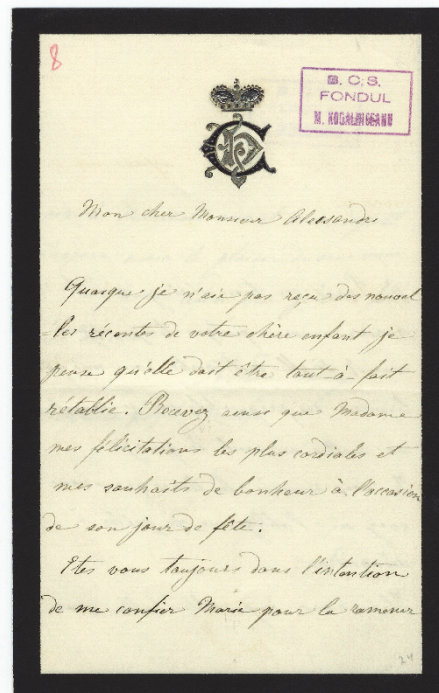 8
B. C. S.
FONDUL
M. KOGALNICEANU
Mon cher Monsieur Alexandri
Quoique je n'aie pas reçu des nouvel
les récentes de votre chère enfant je
pense qu'elle doit être tout à fait
rétablie. Recevez ainsi que Madame
mes félicitations les plus cordiales et
mes souhaits de bonheur à l'occasion
de son jour de fête.
Etes vous toujours dans l'intention
de me confier Marie pour la ramener
24